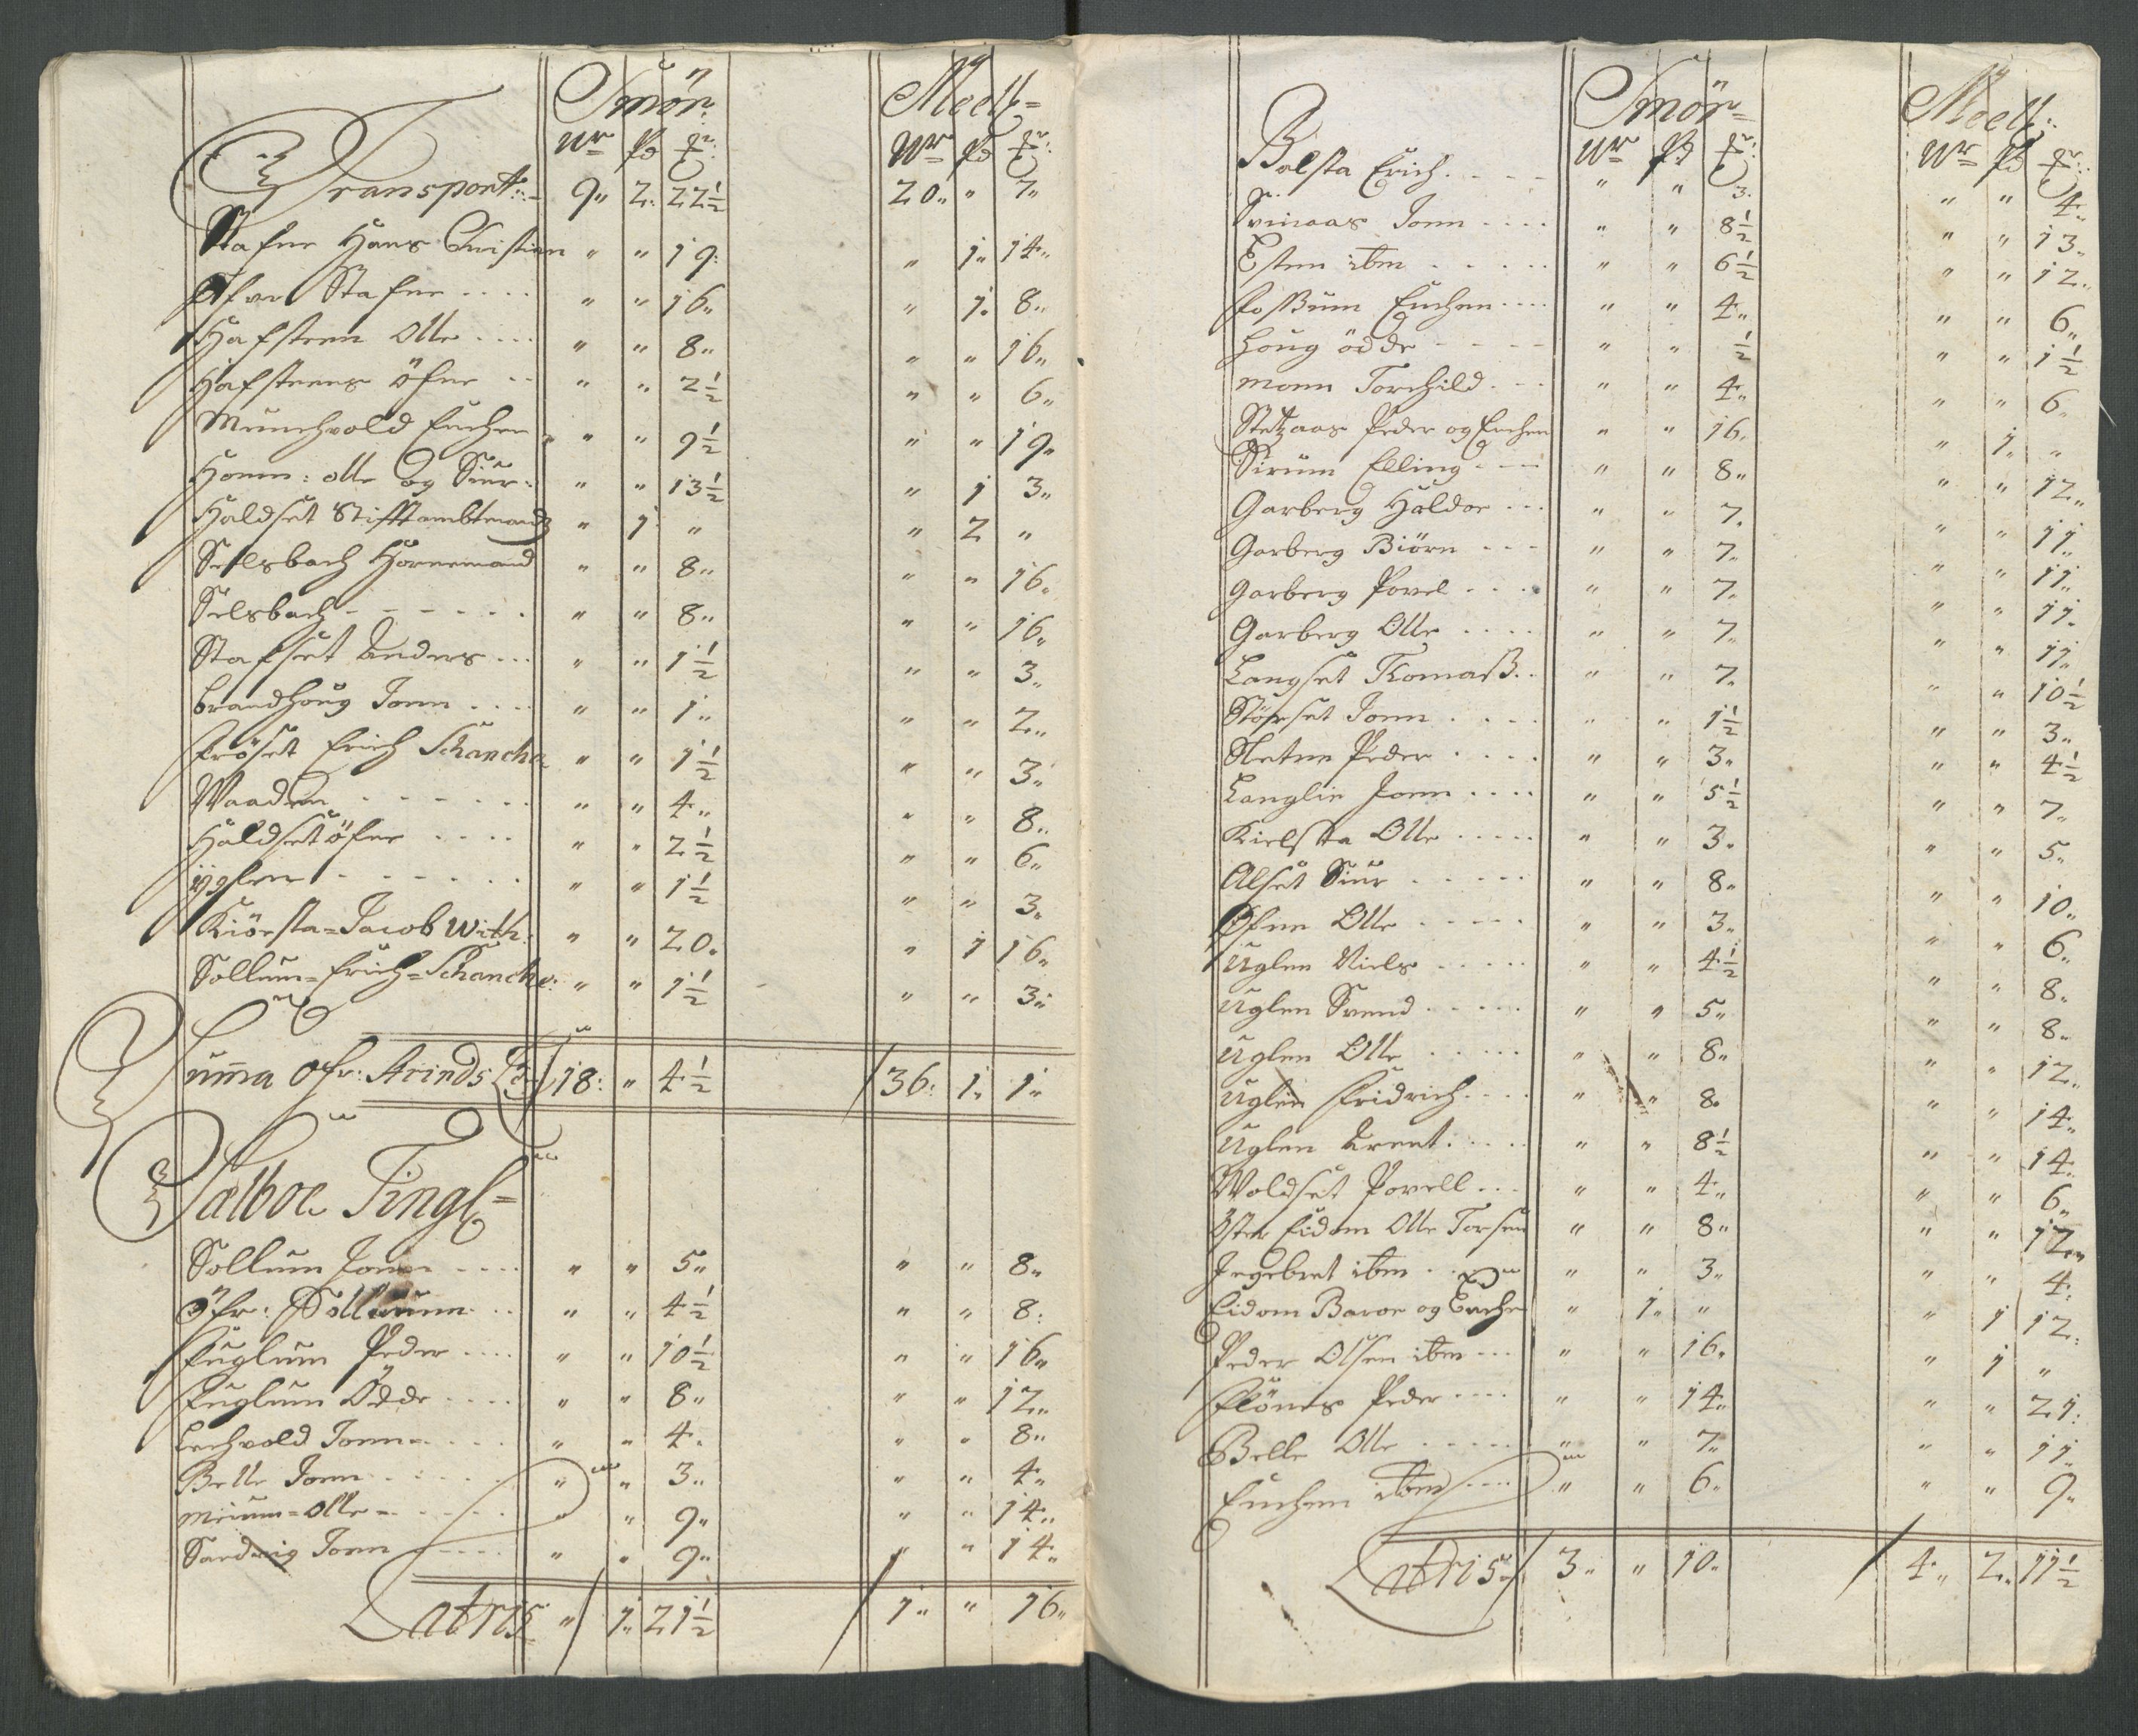 Smör: Meell=
Wr Pd Mr: Wr Pd Mr:
Transport:= 9" 2: 22½ 20" " 7"
Stafne Hans Christian " " 19: " 1" 14"
Øfvre Stafne .... " " 16" " 1. 8"
Hafsteen Olle .... " " 8" " " 16"
Hafsteens öfne .. " " 2½ " " 6"
Munchvold Enchen " " 9½ " " 19"
Homn: olle og Siur: " " 13½ " 1 3"
Haldset Stifftambtmand " 1 " " 2 "
Selsbach Hornemand " " 8" " " 16"
Selsbach - - - - - " " 8" " " 16"
Stafset Anders ... " " 1½ " " 3"
Brandhoug Jonn .... " " 1" " " 2"
Fröset Erich Schancke " " 1½ " " 3"
Waaden . - - - - " " 4" " " 8"
Haldset öfne .... " " 2½ " " 6"
ÿglen . - - - - " " 1½ " " 3"
Kiörsta=Jacob With: " " 20" " 1 16"
Sollum=Erich=Schancke: " " 1½ " " 3"
Summa Ofr: Arinds 18: " 4½ 36: 1" 1"
Sælboe Tingl=
Sollum Jonn .... " " 5" " " 8"
Öfr: Sollum .. " " 4½ " " 8:
Fuglum Peder .... " " 10½ " " 16"
Fuglum Odde .... " " 8" " " 12"
Lechvold Jonn=.... " " 4" " " 8"
Belle Jonn ..... " " 3" " " 4"
Mÿrum=Olle=..... " " 9" " " 14"
Sandvig Jonn .... " " 9" " " 14"
Latris " 1" 21½ 1" " 16"
Smör= Meell:
Wr Pd Mr: Wr Pd Mr:
Balsta Erich. . . . " " 3" " " 4"
Svinaas Jonn .... " " 8½ " " 13"
Esten ibm ..... " " 6½ " " 12"
Foßum Enchen.... " " 4" " " 6"
Houg ödde - - - - " " ½ " " 1½
Moen Torchild. . . " " 4" " " 6"
Stetzaas Peder og Enchen " " 16" " 1" "
Sirum Elling - - - " " 8" " " 12"
Garberg Haldor ... " " 7" " " 11"
Garberg Biörn - - - " " 7" " " 11"
Garberg Povel .... " " 7" " " 11"
Garberg Olle .... " " 7" " " 11"
Langset Thomaß.. " " 7" " " 10½
Störset Jonn .... " " 1½ " " 3"
Sletne Peder .... " " 3" " " 4½
Langlie Jonn .... " " 5½ " " 7"
Kielsta Olle ..... " " 3" " " 5"
Alset Siur ..... " " 8" " " 10"
Öfne Olle ..... " " 3" " " 6"
Uglen Niels ..... " " 4½ " " 8"
Uglen Svend ..... " " 5" " " 8"
Uglen Olle ..... " " 8" " " 12"
Uglen Fridrich.... " " 8" " " 14"
Uglen Arent..... " " 8½ " " 14"
Woldset Povell... " " 4" " " 6"
Öster Eidom Olle Torsen " " 8" " " 12"
Ingebret ibm .. " " 3" " " 4"
Eidom Baroe og Enche " 1" " " 1 12"
Peder Olsen ibm ... " " 16" " 1 "
Flönes Peder .... " " 14" " " 21:
Belle Olle ..... " " 7" " " 11"
Enchen ibm .... " " 6" " " 9"
Latris 3" " 10" 4" 2" 11½